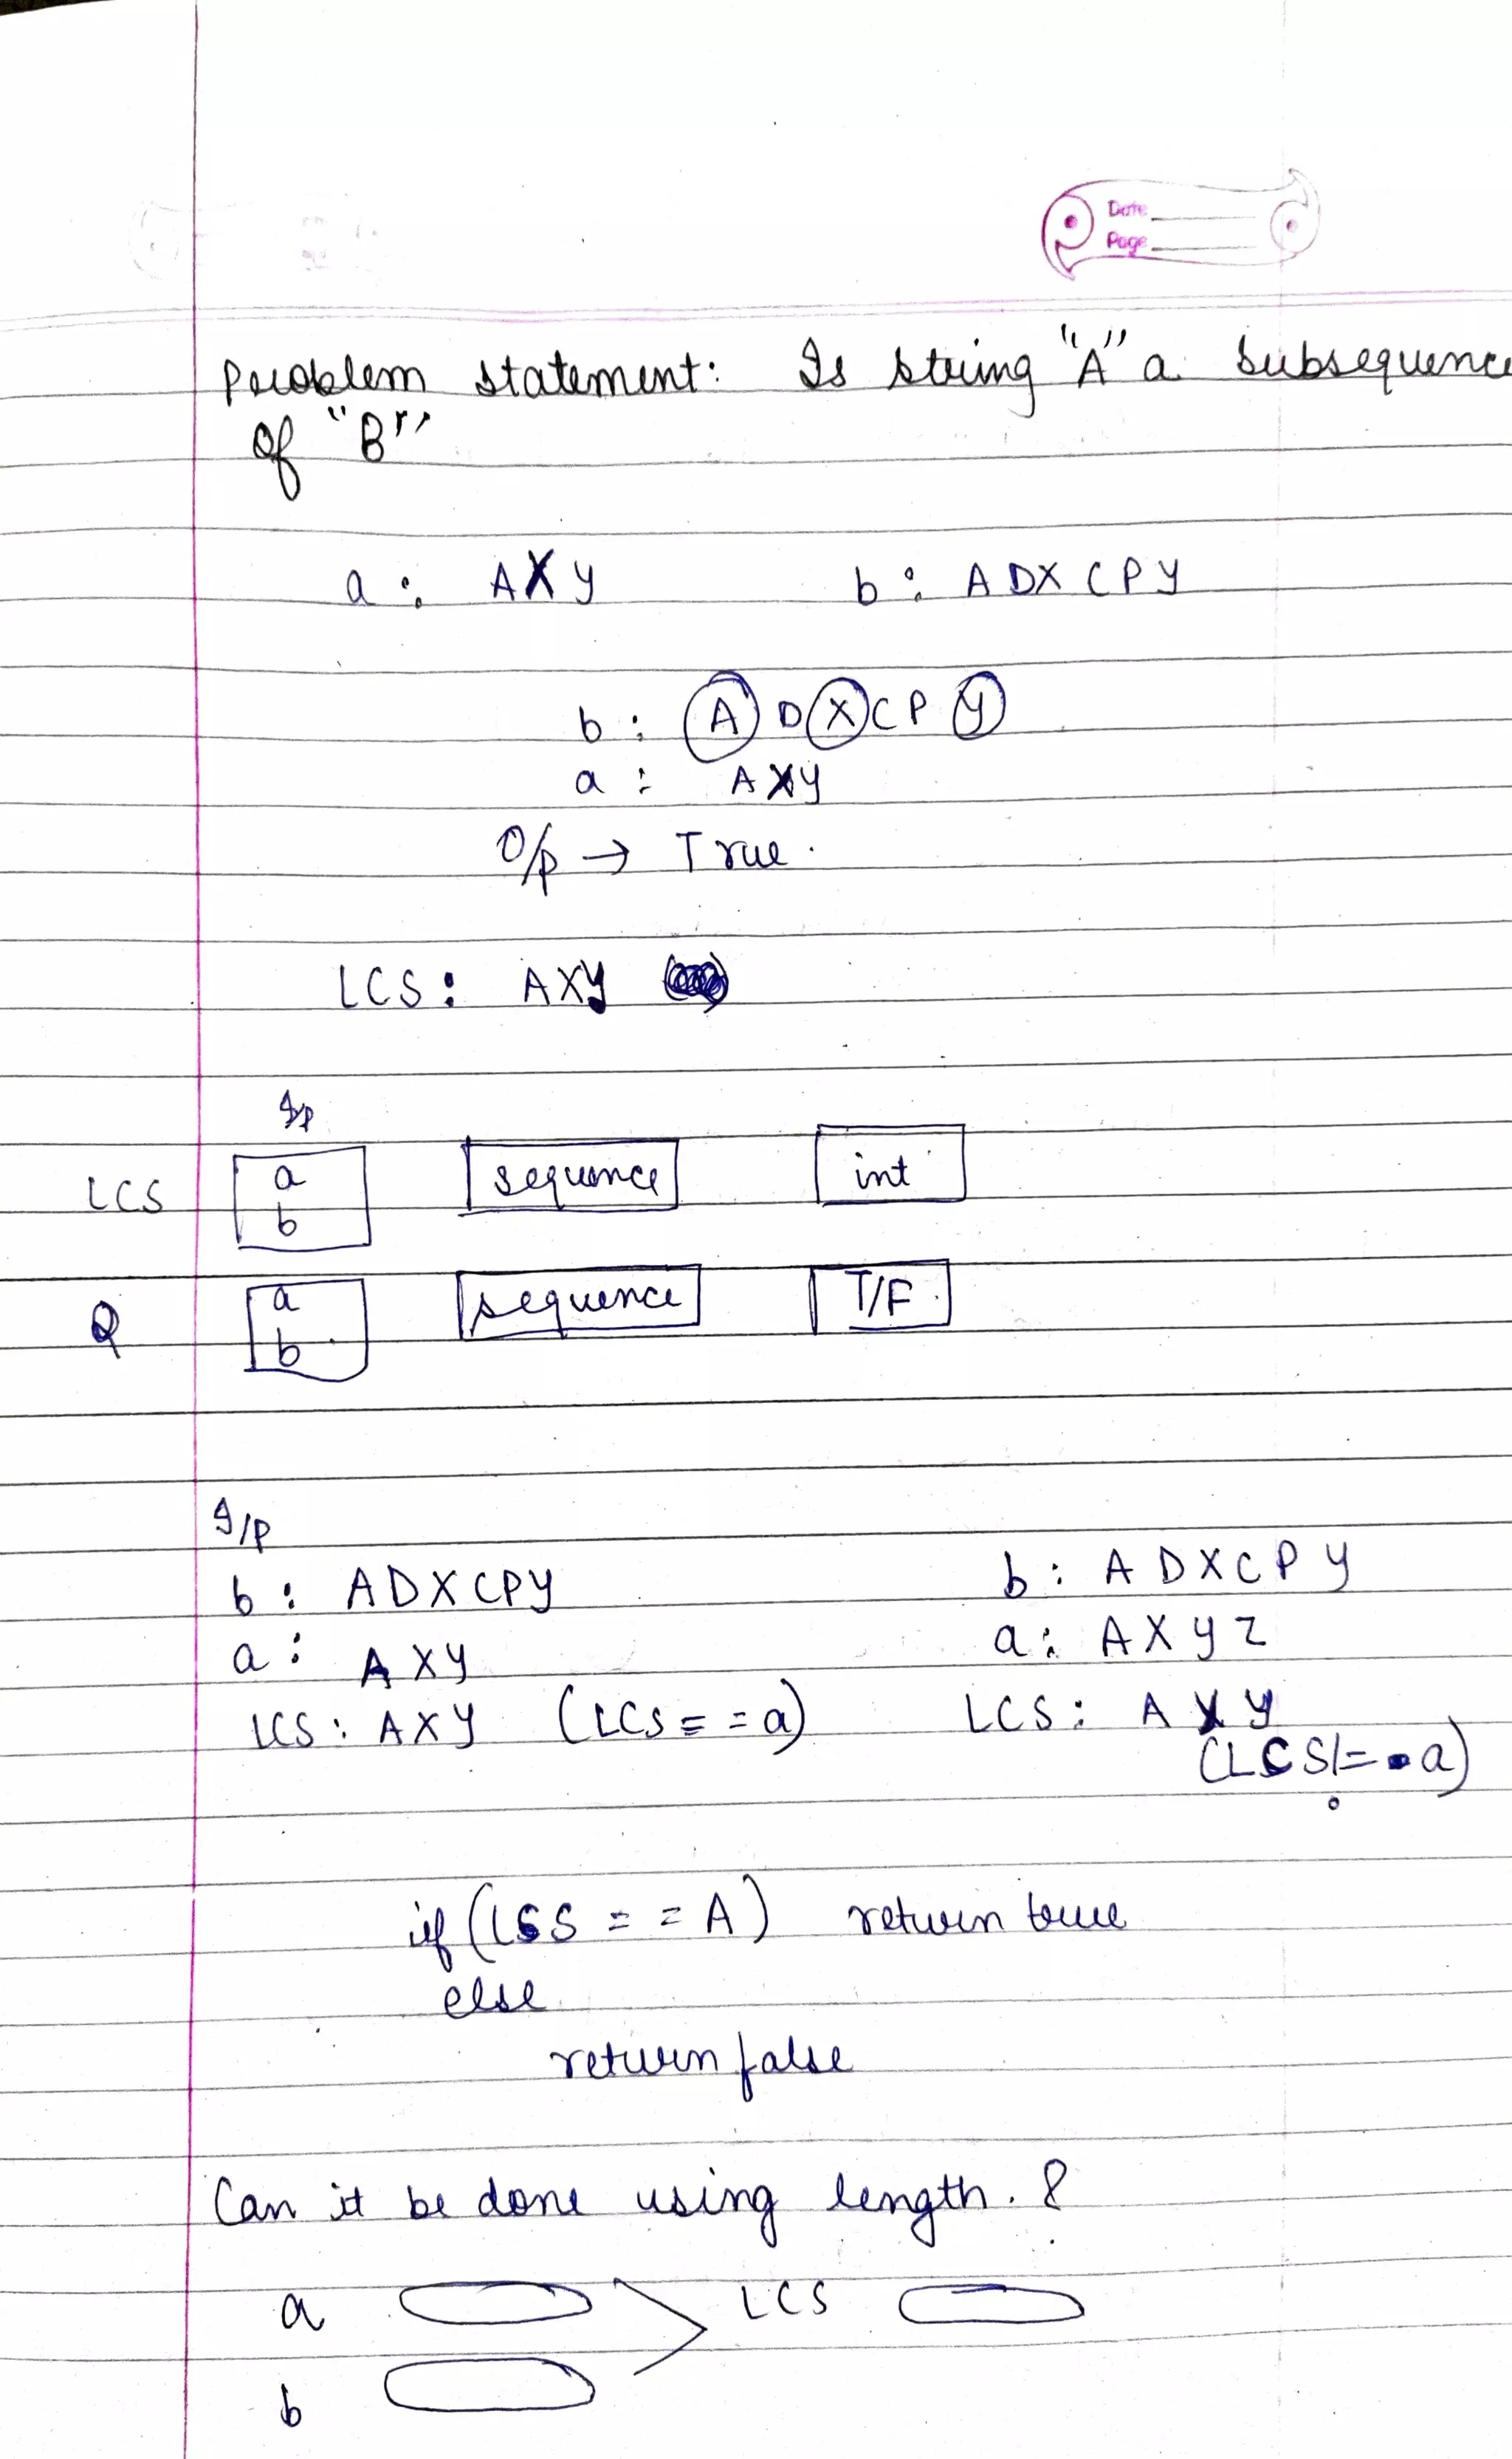 Date
Page
Problem statement: Is string "A" a subsequence
of "B"
a : AXY b : ADXCPY
b : A D X C P Y
a : AXY
O/p → True.
LCS : AXY
I/p
LCS a b sequence int
Q a b sequence T/F
I/P
b : ADXCPY b : ADXCPY
a : AXY a : AXYZ
LCS : AXY (LCS == a) LCS : AXY
(LCS != a)
if (LCS == A) return true
else
return false
Can it be done using length. ?
a LCS
b